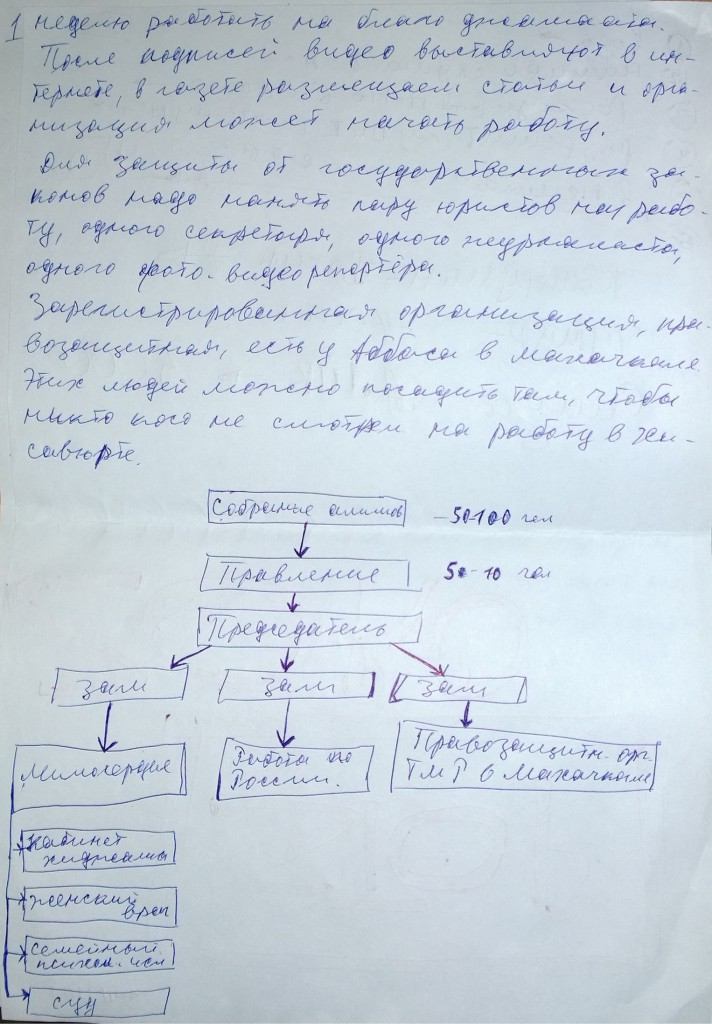 1 неделю работать на благо джамаата.
После подписей видео выставляют в ин-
тернете, в газете размещаем статьи и орга-
низация может начать работу.
Для защиты от государственных за-
конов надо нанять пару юристов на рабо-
ту, одного секретаря, одного журналиста,
одного фото-видеорепортёра.
Зарегистрированная организация, пра-
возащитная, есть у Аббаса в Махачкале.
Этих людей можно посадить там, чтобы
никто косо не смотрел на работу в Хас-
савюрте.
Собрание алимов - 50-100 чел
Правление 5-10 чел
Председатель
Зам Зам Зам
Работа по
России.
Правозащитн. орг.
в Махачкале
Кабинет
хиджамы
Женский
врач
Семейный
психол.